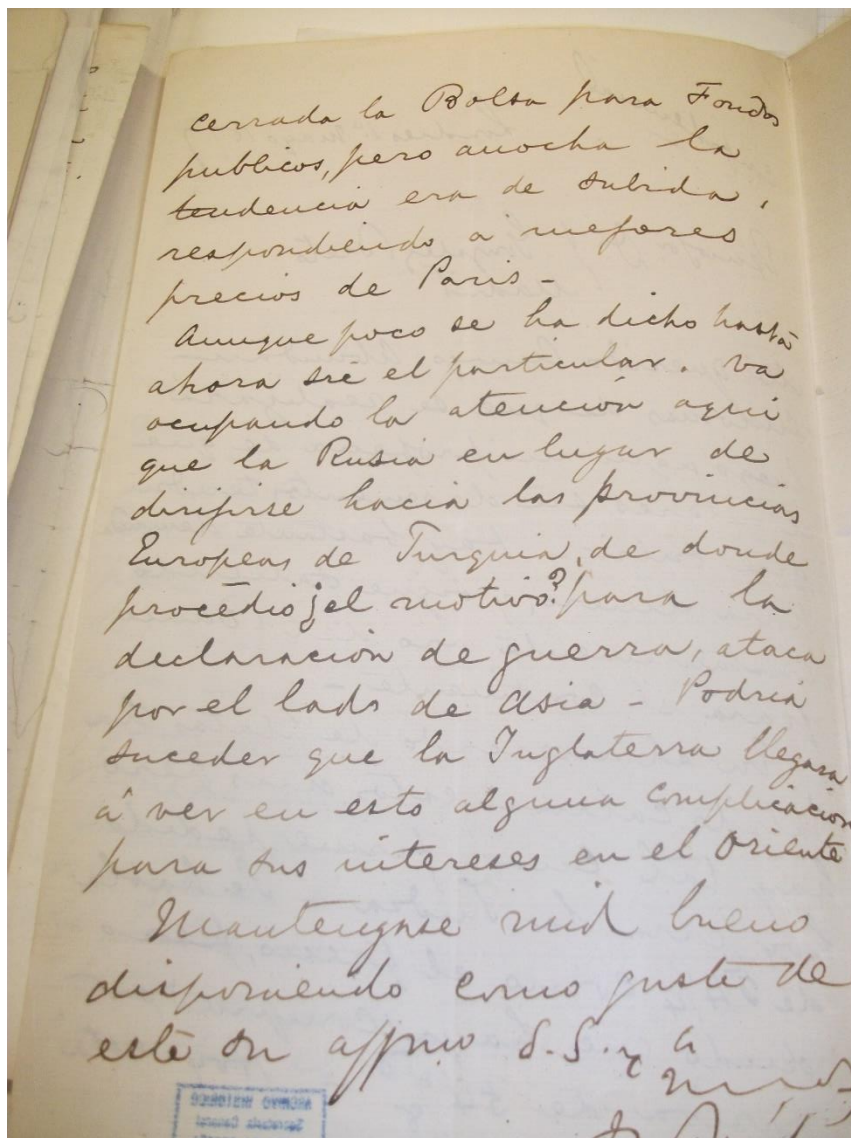 cerrada la Bolsa para Fondos
publicos, pero anocha la
tendencia era de subida,
respondiendo a mejores
precios de Paris -
Aunque poco se ha dicho hasta
ahora sre el particular. va
ocupando la atención aqui
que la Rusia en lugar de
dirijirse hacia las provincias
Europeas de Turquia, de donde
procedio ¿el motivo? para la
declaración de guerra, ataca
por el lado de Asia - Podria
suceder que la Inglaterra llegara
á ver en esto alguna complicacion
para sus intereses en el Oriente
Mantengase bueno
disponiendo como guste de
este su affmo S.S. y a
ARCHIVO HISTORICO